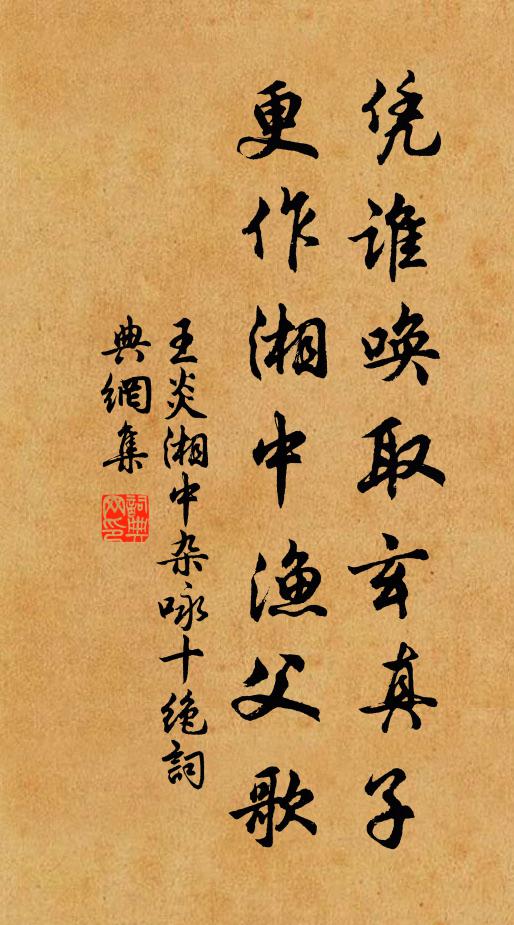 凭谁唤取玄真子
更作湘中漁父歌
王炎湘中杂咏十绝詞
典網集
詞典
网印